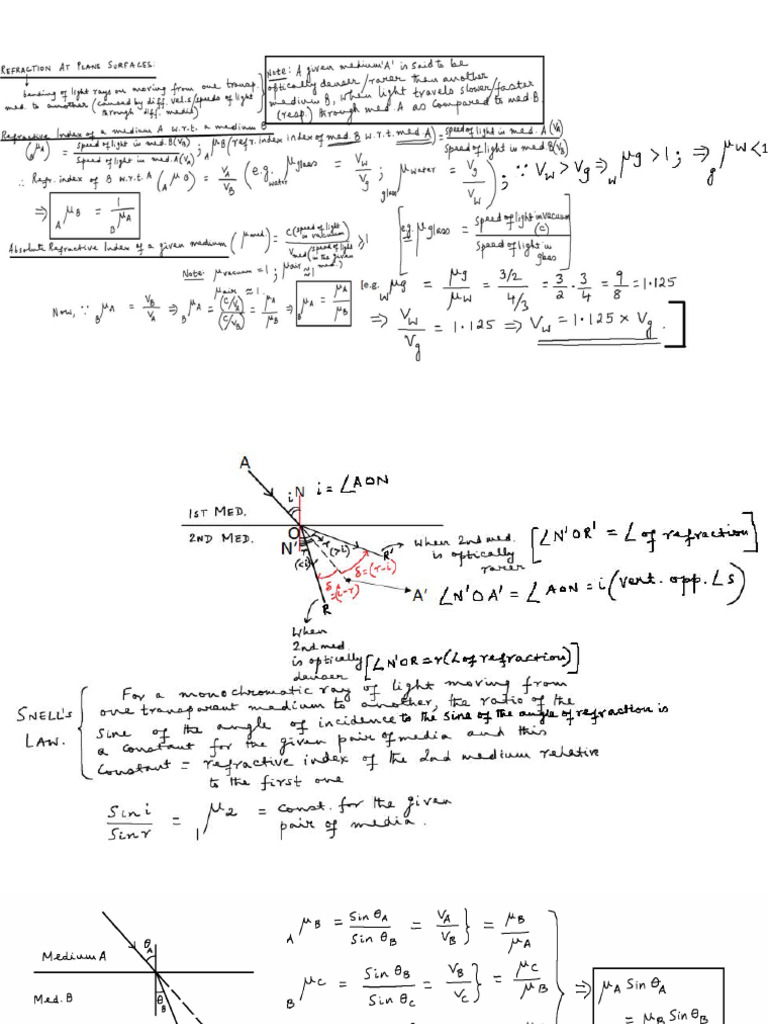 REFRACTION AT PLANE SURFACES:
bending of light rays on moving from one transp. med. to another (caused by diff. vel.s/speeds of light through diff. media)
Note: A given medium 'A' is said to be
optically denser/rarer than another
medium B, when light travels slower/faster
(resp.) through med. A as compared to med B.
Refractive Index of a medium A w.r.t. a medium B
(BμA) = speed of light in med. B(VB) / Speed of light in med. A(VA) ; AμB (refr. index index of med. B w.r.t. med A) = speed of light in med. A (VA) / Speed of light in med. B (VB)
∴ Refr. index of B w.r.t. A (AμB) = VA/VB (e.g. waterμglass = Vw/Vg ; glassμwater = Vg/Vw) ; ∵ Vw > Vg ⇒ wμg > 1 ; ⇒ gμw < 1
⇒ AμB = 1/BμA
Absolute Refractive Index of a given medium (μmed) = C (speed of light in vacuum) / Vmed (speed of light in the given med.) ≥ 1
[e.g. μglass = Speed of light in vacuum (C) / Speed of light in glass]
Note: μvacuum = 1 ; μair ≈ 1
μair ≈ 1.
Now, ∵ BμA = VB/VA ⇒ BμA = (C/VA)/(C/VB) = μA/μB ⇒ BμA = μA/μB
[e.g. wμg = μg/μw = 3/2 / 4/3 = 3/2 · 3/4 = 9/8 = 1.125
⇒ Vw/Vg = 1.125 ⇒ Vw = 1.125 × Vg.]
A
i N i = ∠AON
1ST MED.
O
2ND MED.
N'
r (>i)
(<i)
R'
When 2nd med. is optically rarer
[∠N'OR' = ∠ of refraction]
δ = (r-i)
δ = (i-r)
A' ∠N'OA' = ∠AON = i (vert. opp. ∠s)
R
When
2nd med.
is optically
denser
[∠N'OR = r (∠ of refraction)]
SNELL'S LAW.
For a monochromatic ray of light moving from
one transparent medium to another, the ratio of the
sine of the angle of incidence to the sine of the angle of refraction is
a constant for the given pair of media and this
constant = refractive index of the 2nd medium relative
to the first one
Sin i / Sin r = 1μ2 = const. for the given
pair of media.
Medium A
θA
Med. B
θB
AμB = Sin θA / Sin θB = VA/VB } = μB/μA
BμC = Sin θB / Sin θC = VB/VC } = μC/μB
⇒ μA Sin θA
= μB Sin θB